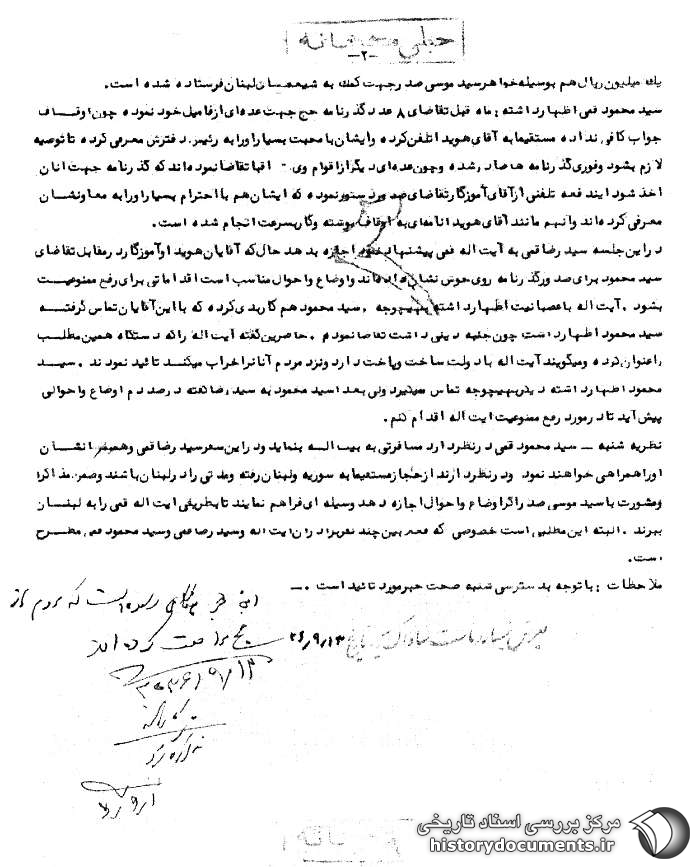 خیلی محرمانه
-۲-
یك میلیون ریال هم بوسیله خواهر سید موسی صدر جهت کمك به شیعیان لبنان فرستاده شده است .
سید محمود قمی اظهار داشته : ماه قبل تقاضای ۸ عدد گذرنامه حج جهت عده‌ای از فامیل خود نموده چون اوقاف
جواب کافی نداده مستقیما به آقای هویدا تلفن کرده و ایشان با محبت بسیار او را به رئیس دفترش معرفی کرده تا توصیه
لازم بشود و فوری گذرنامه ها صادر شده و چون عده‌ای دیگر از اقوام وی تقاضا نموده‌اند که گذرنامه جهت آنان
اخذ شود ایندفعه تلفنی از آقای آموزگار تقاضای صدور نموده که ایشان هم با احترام بسیار او را به معاونشان
معرفی کرده‌اند و آنهم مانند آقای هویدا نامه‌ای به اوقاف نوشته و کار بسرعت انجام شده است .
در این جلسه سید رضا قمی به آیت اله قمی پیشنهاد نموده اجازه بدهد حال که آقایان هویدا و آموزگار در مقابل تقاضای
سید محمود برای صدور گذرنامه روی خوش نشان داده‌اند و اوضاع و احوال مناسب است اقداماتی برای رفع ممنوعیت
بشود . آیت اله با عصبانیت اظهار داشته بهیچوجه . سید محمود هم کار بدی کرده که با این آقایان تماس گرفته
سید محمود اظهار داشت چون جنبه دینی داشت تقاضا نمودم . حاضرین گفته آیت اله را که دستگاه همین مطلب
را عنوان کرده و میگویند آیت اله با دولت ساخت و پاخت دارد و نزد مردم آنانرا خراب میکنند تائید نمودند . سید
محمود اظهار داشته دیگر بهیچوجه تماس نمیگیرد ولی بعدا سید محمود به سید رضا گفته درصددم اوضاع و احوالی
پیش آید تا در مورد رفع ممنوعیت آیت اله اقدام کنم .
نظریه شنبه ـ سید محمود قمی در نظر دارد مسافرتی به بیت اله بنماید و در این سفر سید رضا قمی و همسر ایشان
او را همراهی خواهند نمود و در نظر دارند از حجاز مستقیما به سوریه و لبنان رفته و مدتی را در لبنان باشند و ضمن مذاکره
و مشورت با سید موسی صدر اگر اوضاع و احوال اجازه دهد وسیله ای فراهم نمایند تا بطریقی آیت اله قمی را به لبنان
ببرند . البته این مطلبی است خصوصی که فقط بین چند نفر برادران آیت اله و سید رضا قمی و سید محمود قمی مطرح
است .
ملاحظات : با توجه بدسترسی شنبه صحت خبر مورد تائید است .
که مردم از
۳۶/۹/۱۳
مرکز بررسی اسناد تاریخی
historydocuments.ir